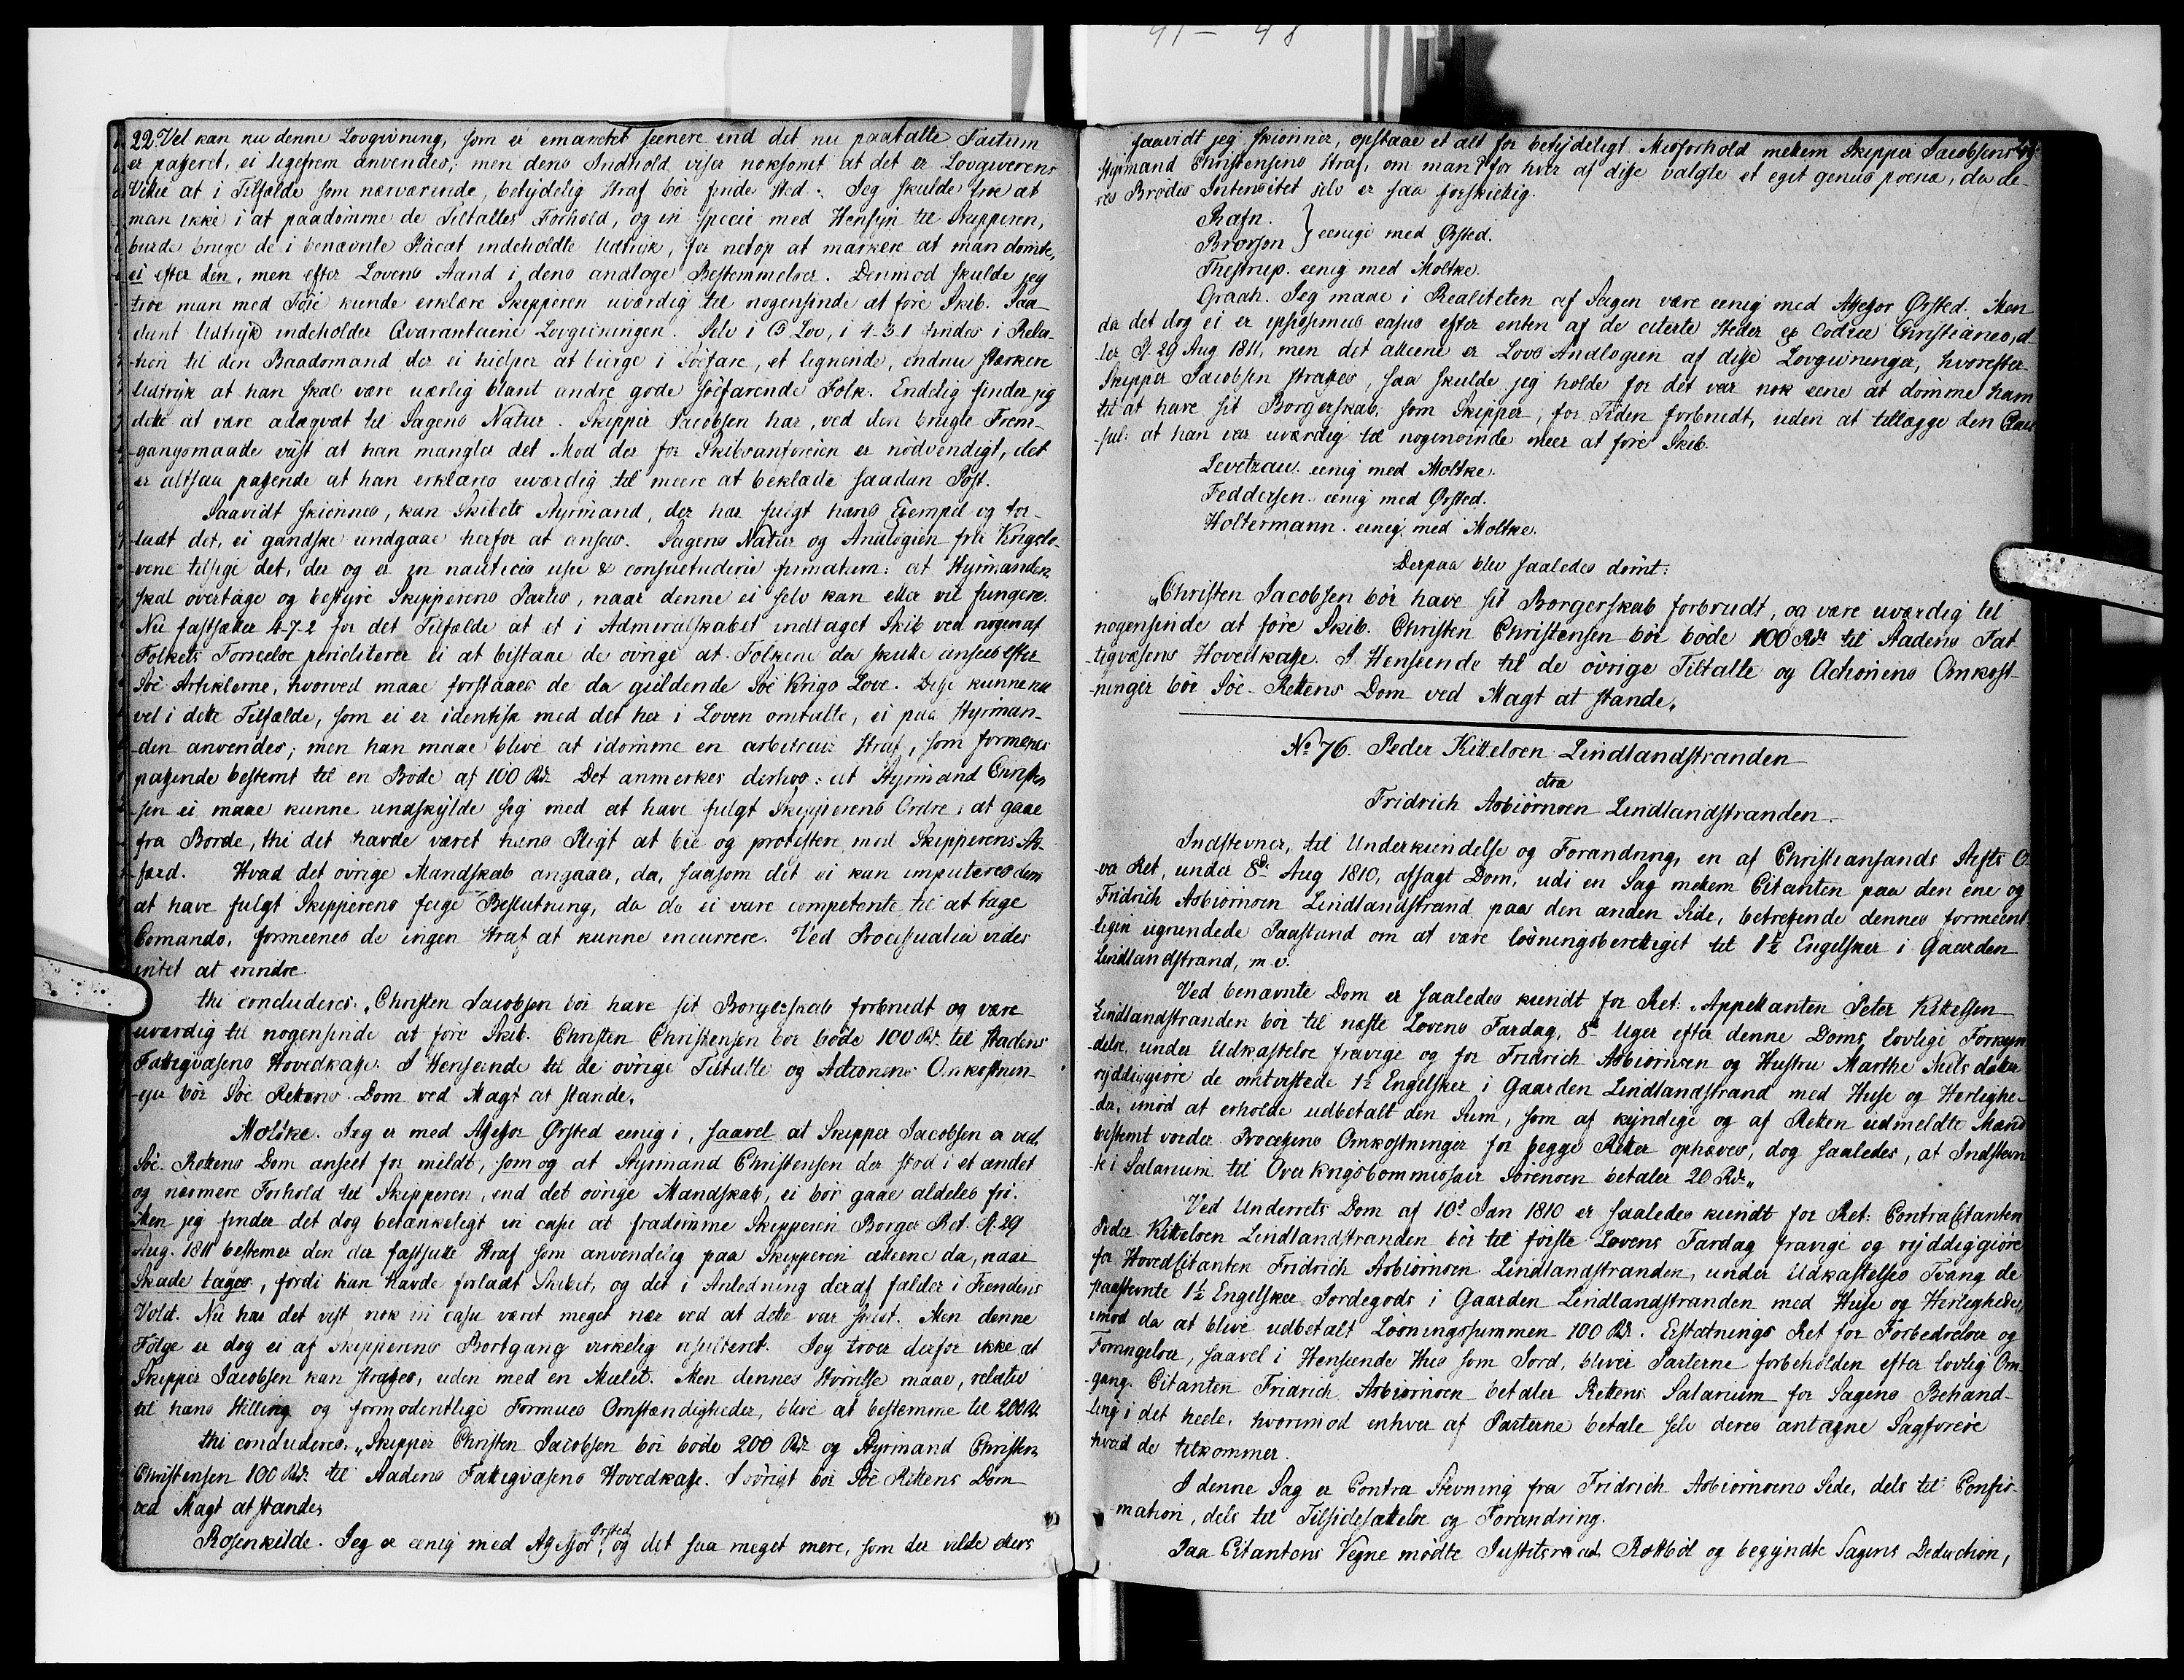 22. Vel kan nu denne Lovgivning, som er emaneret seenere end det nu paatalte Factum
er passeret, ei ligefrem anvendes; men dens Indhold viser noksomt at det er Lovgiverens
Villie at i Tilfælde som nærværende, betydelig Straf bör finde sted. Jeg skulde troe at
man ikke i at paadömme de Tiltaltes Forhold, og in specie med Hensyn til Skipperen,
burde bruge de i benævnte Placat indeholdte Udtryk, for netop at markere at man dömte,
ei efter den, men efter Lovens Aand i dens analoge Bestemmelser. Derimod skulde jeg
troe man med Föie kunde erklære Skipperen uværdig til nogensinde at före Skib. Saa-
dant Udtryk indeholder Qvarantaine Lovgivningen. Selv i C5 Lov, i 4-3-1 findes i Rela-
tion til den Baadsmand der ei hielper at bierge i Söefare, et lignende, endnu stærkere
Udtryk at han skal være uærlig blant andre gode söefarende Folk. Endelig finder jeg
dette at være adæqvat til Sagens Natur. Skipper Jacobsen har, ved den brugte Frem-
gangsmaade viist at han mangler det Mod der for Skibsanföreren er nödvendigt, det
er altsaa passende at han erklæres uværdig til meere at beklæde saadan Post.
Saavidt skiönnes, kan Skibets Styrmand, der har fulgt hans Exempel og for-
ladt det, ei gandske undgaae herfor at ansees. Sagens Natur og Analogien fra Krigslo-
vene tilsige det, der og er in nauticis usu & consuetudine firmatum: at Styrmanden
skal overtage og bestyre Skipperens Parties, naar denne ei selv kan eller vil fungere.
Nu fastsætter 4-7-2 for det Tilfælde at et i Admiralskabet indtaget Skib ved nogen af
Folkets Forseelse periditerer ei at bistaae de övrige at Folkene da skulle ansees efter
Söe Artiklerne, hvorved maae forstaaes de da gieldende Söe Krigs Love. Disse kunne nu
vel i dette Tilfælde, som ei er identisk med det her i Loven omtalte, ei paa Styrman-
den anvendes; men han maae blive at idömme en arbitrair Straf, som formenes
passende bestemt til en Böde af 100 Rd. Det anmerkes derhos: at Styrmand Christen
sen ei maae kunne undskylde sig med at have fulgt Skipperens Ordre at gaae
fra Borde, thi det havde været hans Pligt at blie og protestere mod Skipperens Af-
færd. Hvad det övrige Mandskab angaaer, da, saasom det ei kan imputeres dem
at have fulgt Skipperens feige Beslutning, da de ei vare competente til at tage
Comando, formeenes de ingen Straf at kunne incurrere. Ved Processualia vides
intet at erindre.
thi concluderes: „Christen Jacobsen bör have sit Borgerskab forbrudt og være
uværdig til nogensinde at före Skib. Christen Christensen bör böde 100 Rd. til Stadens
Fattigvæsens Hovedkasse. I Henseende til de övrige Tiltalte og Actionens Omkostnin-
ger bör Söe Rettens Dom ved Magt at stande.
Moltke. Jeg er med Assessor Ørsted eenig i, saavel at Skipper Jacobsen er ved
Söe-Rettens Dom anseet for mildt, som og at Styrmand Christensen der stod i et andet
og nærmere Forhold til Skipperen, end det övrige Mandskab, ei bör gaae aldeles fri.
Men jeg finder det dog betænkeligt in casu at fradömme Skipperen Borger Ret. Pl. 29
Aug. 1811 bestemer den der fastsatte Straf som anvendelig paa Skipperen alleene da, naar
Skade tages, fordi han havde forladt Skibet, og det i Anledning deraf falder i Fiendens
Vold. Nu har det vist nok in casu været meget nær ved at dette var skeet. Men denne
Fölge er dog ei af Skipperens Bortgang virkelig resulteret. Jeg troer derfor ikke at
Skipper Jacobsen kan straffes, uden med en Mulct. Men dennes Störrelse maae, relativ
til hans Stilling og formodentlige Formues Omstændigheder, blive at bestemme til 200 Rd.
thi concluderes: „Skipper Christen Jacobsen bör böde 200 Rd. og Styrmand Christen
Christensen 100 Rd. til Stadens Fattigvæsens Hovedkasse. I övrigt bör Söe Rettens Dom
ved Magt at stande„
Rosenkilde. Jeg er eenig med Assessor Ørsted, og det saa meget mere, som der vilde ellers
saavidt jeg skiönner, opstaae et alt for betydeligt Misforhold mellem Skipper Jacobsens og
Styrmand Christensens Straf, om man for hver af disse valgte et eget genus poena, da de-
res Brödes Intensitet selv er saa forskiellig.
Rafn.
Brorson } eenige med Ørsted.
Thestrup. eenig med Moltke.
Graah. Jeg maae i Realiteten af Sagen være eenig med Assessor Ørsted. Men
da det dog ei er ipsissimus casus efter enten af de citerte Steder ex Codice Christianeo, el-
ler Pl. 29 Aug 1811, men det alleene er Lovs Analogien af disse Lovgivninger, hvorefter
Skipper Jacobsen straffes, saa skulde jeg holde for det var nok eene at dömme ham
til at have sit Borgerskab, som Skipper, for Tiden forbrudt, uden at tillægge den Clau
sul: at han var uværdig til nogensinde meer at före Skib.
Levetzau. eenig med Moltke.
Feddersen. eenig med Ørsted.
Holtermann. eenig med Moltke.
Derpaa blev saaledes dömt:
„Christen Jacobsen bör have sit Borgerskab forbrudt, og være uværdig til
nogensinde at före Skib. Christen Christensen bör böde 100 Rd. til Stadens Fat-
tigvæsens Hovedkasse. I Henseende til de övrige Tiltalte og Actionens Omkost-
ninger bör Söe-Rettens Dom ved Magt at stande„
No 76. Peder Kittelsen Lindlandstranden
ctra
Fridrich Asbiörnsen Lindlandstranden.
Indstevner, til Underkiendelse og Forandring, en af Christiansands Stifts O-
ver Ret, under 8de Aug 1810, afsagt Dom, udi en Sag mellem Citanten paa den ene og
Fridrich Asbiörnsen Lindlandstrand paa den anden Side, betreffende dennes formeent-
ligen ugrundede Paastand om at være lösningsberettiget til 1½ Engelsker i Gaarden
Lindlandstrand, m.v.
Ved benævnte Dom er saaledes kiendt for Ret: „Appellanten Peter Kittelsen
Lindlandstranden bör til næste Lovens Fardag, 8te Uger efter denne Doms lovlige Forkyn
delse, under Udkastelse fravige og for Fridrich Asbiörnsen og Hustru Marthe Niels datter
ryddiggiöre de omtvistede 1½ Engelsker i Gaarden Lindlandstrand med Huse og Herlighe-
der, imod at erholde udbetalt den Sum, som af kyndige og af Retten udmeldte Mænd
bestemt vorder. Processens Omkostninger for begge Retter ophæves, dog saaledes, at Indstevn
te i Salarium til Over Krigscommissair Sörensen betaler 20 Rd„
Ved Underrets Dom af 10de Jan 1810 er saaledes kiendt for Ret: ContraCitanten
Peder Kittelsen Lindlandstranden bör til förste Lovens Fardag fravige og ryddiggiöre
for HovedCitanten Fridrich Asbiörnsen Lindlandstranden, under Udkastelses Tvang de
paastevnte 1½ Engelsker Jordegods i Gaarden Lindlandstranden med Huse og Herligheder,
imod da at blive udbetalt Lösningssummen 100 Rd. Erstatnings Ret for Forbedrelser og
Forringelser, saavel i Henseende Huse som Jord, bliver Parterne forbeholden efter lovlig Om-
gang. Citanten Fridrich Asbiörnsen betaler Rettens Salarium for Sagens Behand-
ling i det heele, hvorimod enhver af Parterne betale selv deres antagne Sagförere
hvad de tilkommer.
I denne Sag er Contra Stevning fra Fridrich Asbiörnsens Side, dels til Confir-
mation, dels til Tilsidesættelse og Forandring.
Paa Citantens Vegne mödte Justitsraad Rottböl og begyndte Sagens Deduction,